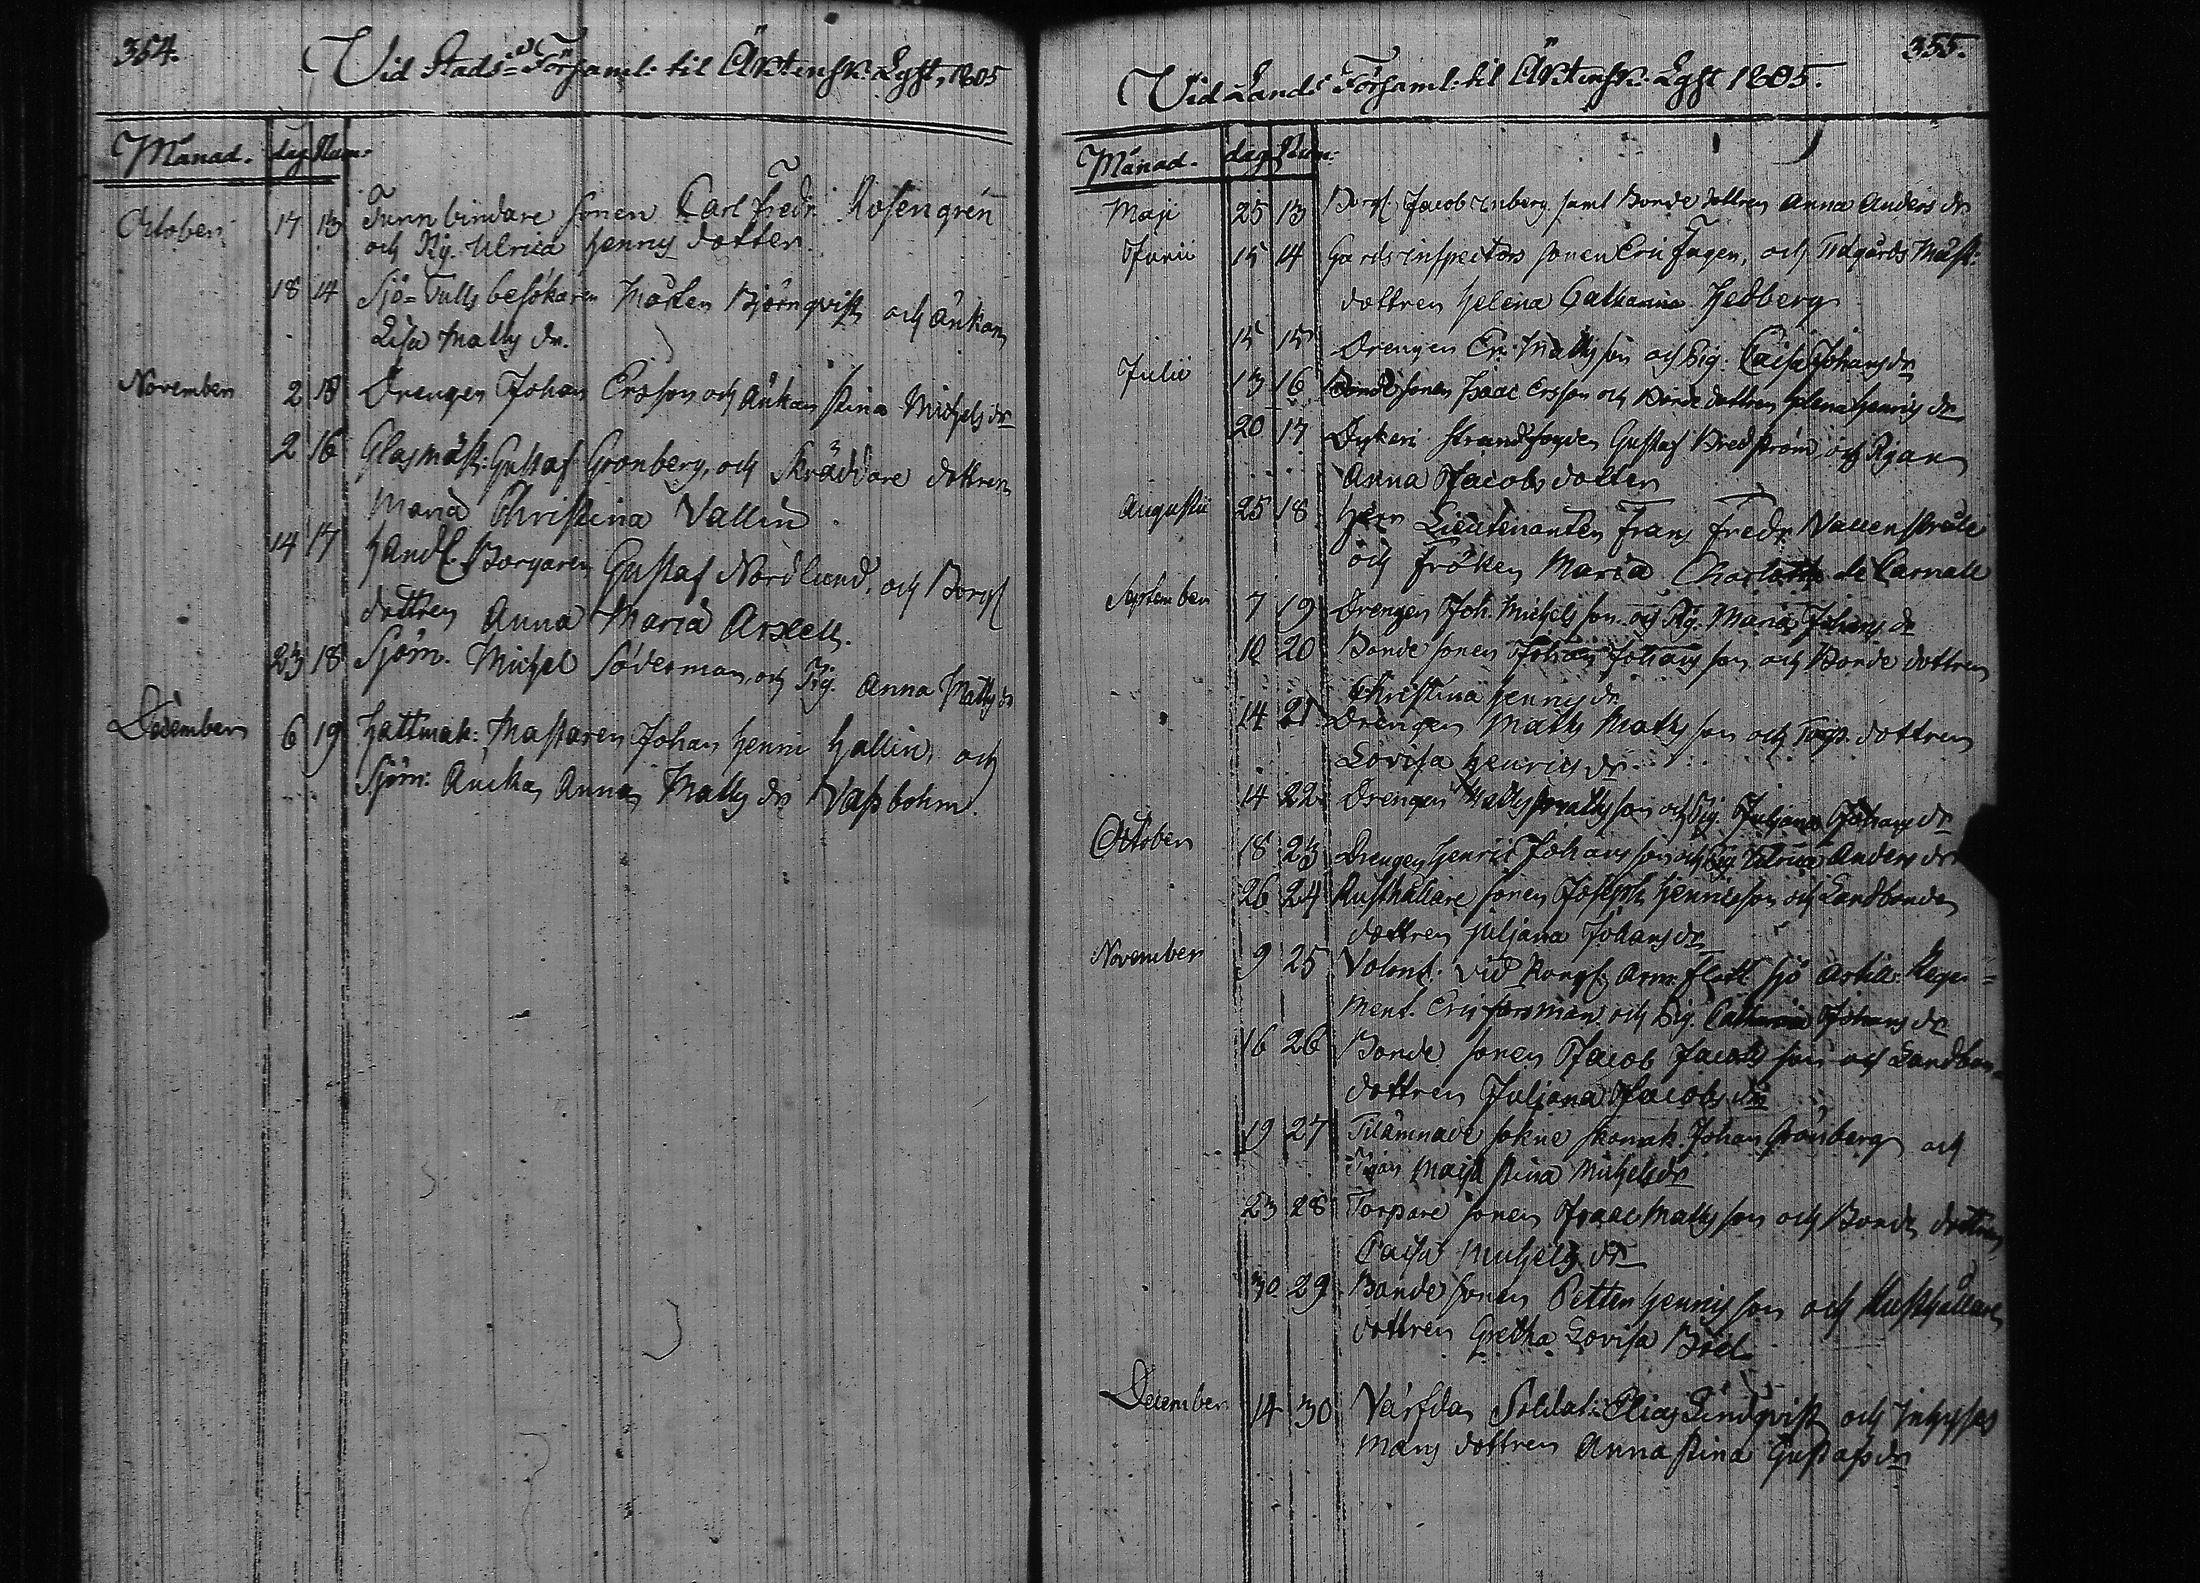 354.
Vid Stads-Församl: til Äktensk: Lyst, 1805
Månad. dag Num:
October 17 13 Tunnbindare sonen Carl Fredr: Rosengrén
och Pig. Ulrica Henrics dotter.
18 14 Sjö-Tulls besökaren Mårten Björnqvist och Änkan
Lisa Matts dr.
November 2 15 Drengen Johan Ersson och Änkan Stina Michels dr
2 16 Glasmäst: Gustaf Grönberg, och Skräddare dottren
Maria Christina Vallin.
14 17 Handl. Borgaren Gustaf Nordlund, och Borgl
dottren Anna Maria Arxell.
23 18 Sjöm. Michel Söderman, och Pig. Anna Matts dr
December 6 19 Hattmak: Mästaren Johan Henric Hallin, och
Sjöm: Änka, Anna Matts dr Vassbohm.
355.
Vid Lands Församl: til Äktensk: Lyst 1805.
Månad. dag Num:
Maji 25 13 Borgl. Jacob Enberg samt Bonde dottren Anna Anders dr
Junii 15 14 Gårds inspectors sonen Eric Fagen, och Tidgårds Mäst:
dottren Helena Catharina Hedberg
15 15 Drengen Er: Matts son och Pig: Caisa Johans dr
Julii 13 16 Bonde sonen Isaac Ersson och Bonde dottren Helena Henrics dr
20 17 Dykeri Strandfogden Gustaf Bredström, och Pigan
Anna Jacobs dotter
Augusti 25 18 Herr Lieutenanten Frans Fredr. Nallenstråle
och Fröken Maria Charlotta de Carnall
September 7 19 Drengen Joh. Michels son och Pig. Maria Johans dr
12 20 Bonde sonen Johan Johans son och Bonde dottren
Christina Henrics dr
14 21 Drengen Matts Matts son och Torp. dottren
Lovisa Henrics dr
14 22 Drengen Matts Matts son och Pig. Juljana Johans dr
October 18 23 Drengen Henric Johans son och Pig. Ulrica Anders dr
26 24 Rusthållare sonen Joseph Henricsson och Landbonde
dottren Juljana Johans dr
November 9 25 Volont. vid Kongl. Arm. Flott. Sjö Artill: Rege-
ment. Eric Forsman och Pig. Catharina Johans dr
16 26 Bonde sonen Jacob Jacobs son och Landbon-
dottren Juljana Jacobs dr
19 27 Tilämnade sokne skomak. Johan Grönberg och
Pigan Maja Stina Michels dr
23 28 Torpare sonen Isaac Matts son och Bonde dottren
Caisa Michels dr
30 29 Bonde sonen Petter Henrics son och Rusthållare
dottren Gretha Lovisa Böel
December 14 30 Värfda Soldat: Elias Lindqvist och Inhyses
mans dottren Anna Stina Gustafs dr